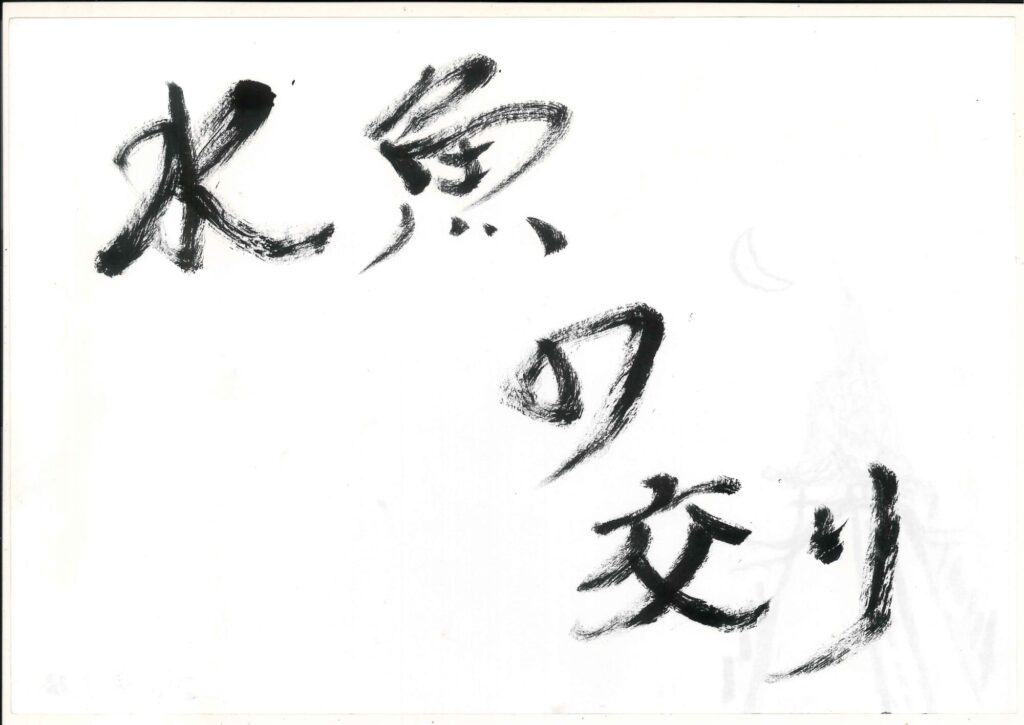 水魚
の
交り